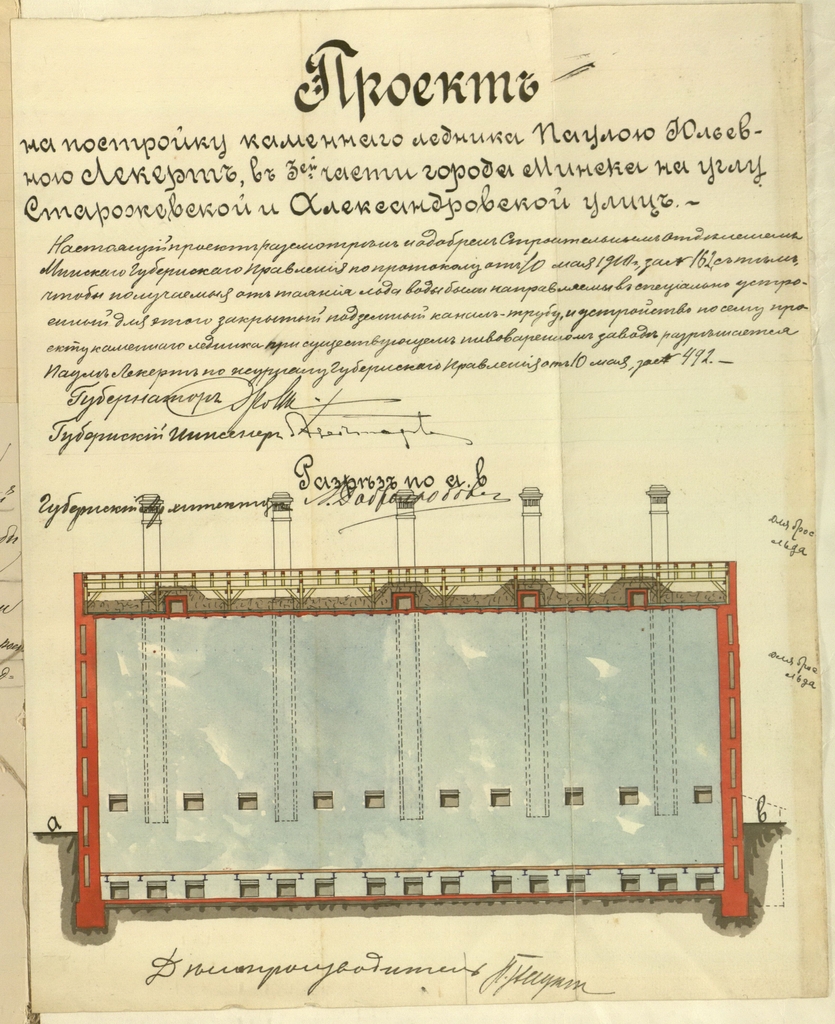 Проектъ
на постройку каменнаго ледника Паулою Юльев-
ною Лекертъ, въ 3ей части города Минска на углу
Старожевской и Александровской улицъ.-
Настоящій проектъ разсмотрѣнъ и одобренъ Строительнымъ Отдѣленіемъ
Минскаго Губернскаго Правленія по протоколу отъ 10 мая 1910г, за № 162 съ тѣмъ,
чтобы получаемыя отъ таянія льда воды были направляемы въ спеціально устро-
енный для этого закрытый подземный каналъ-трубу, и устройство по сему про-
екту каменнаго ледника при существующемъ пивоваренномъ заводѣ разрѣшается
Паулѣ Лекертъ по журналу Губернскаго Правленія отъ 10 мая, за № 492.-
Губернаторъ
Губернскій Инженеръ
Разрѣзъ по а.в
Губернскій Архитекторъ
для брос
льда
для брос
льда
а
в
Дѣлопроизводитель